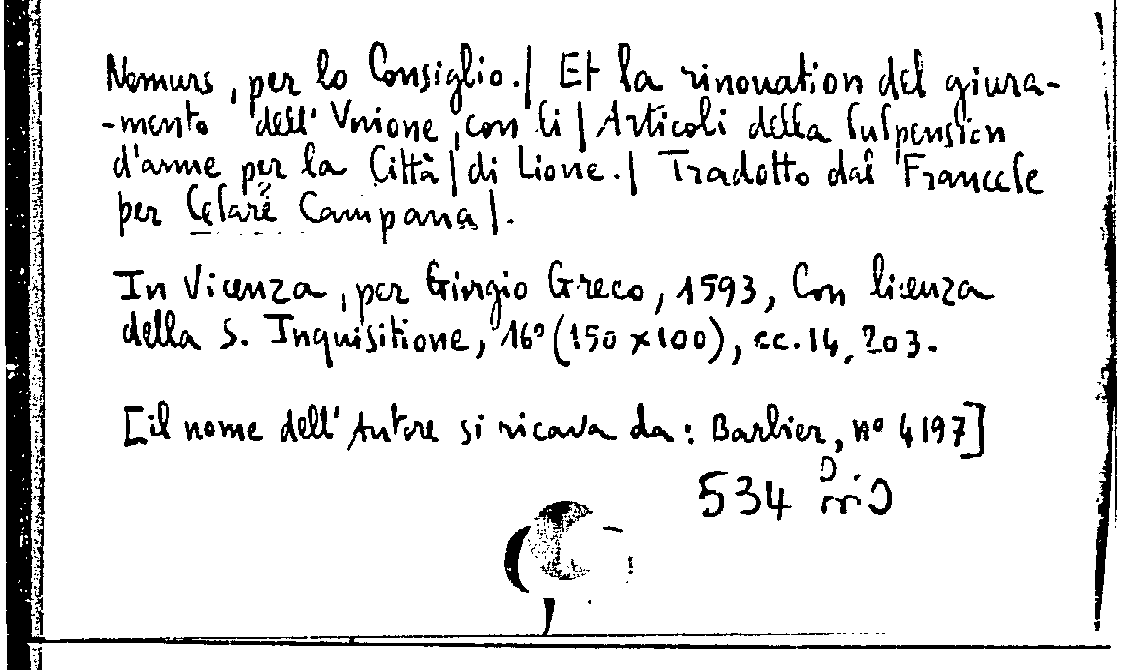 Nemurs, per lo Consiglio.| Et la rinouation del giura-
-mento dell' Vnione, con li | Articoli della ſuſpension
d'arme per la Città | di Lione.| Tradotto dal Franceſe
per Ceſare Campana|.
In Vicenza, per Giorgio Greco, 1593, Con licenza
della S. Inquisitione, 16º (150 x 100), cc. 14, 203.
[il nome dell'Autore si ricava da: Barbier, nº 4197]
534